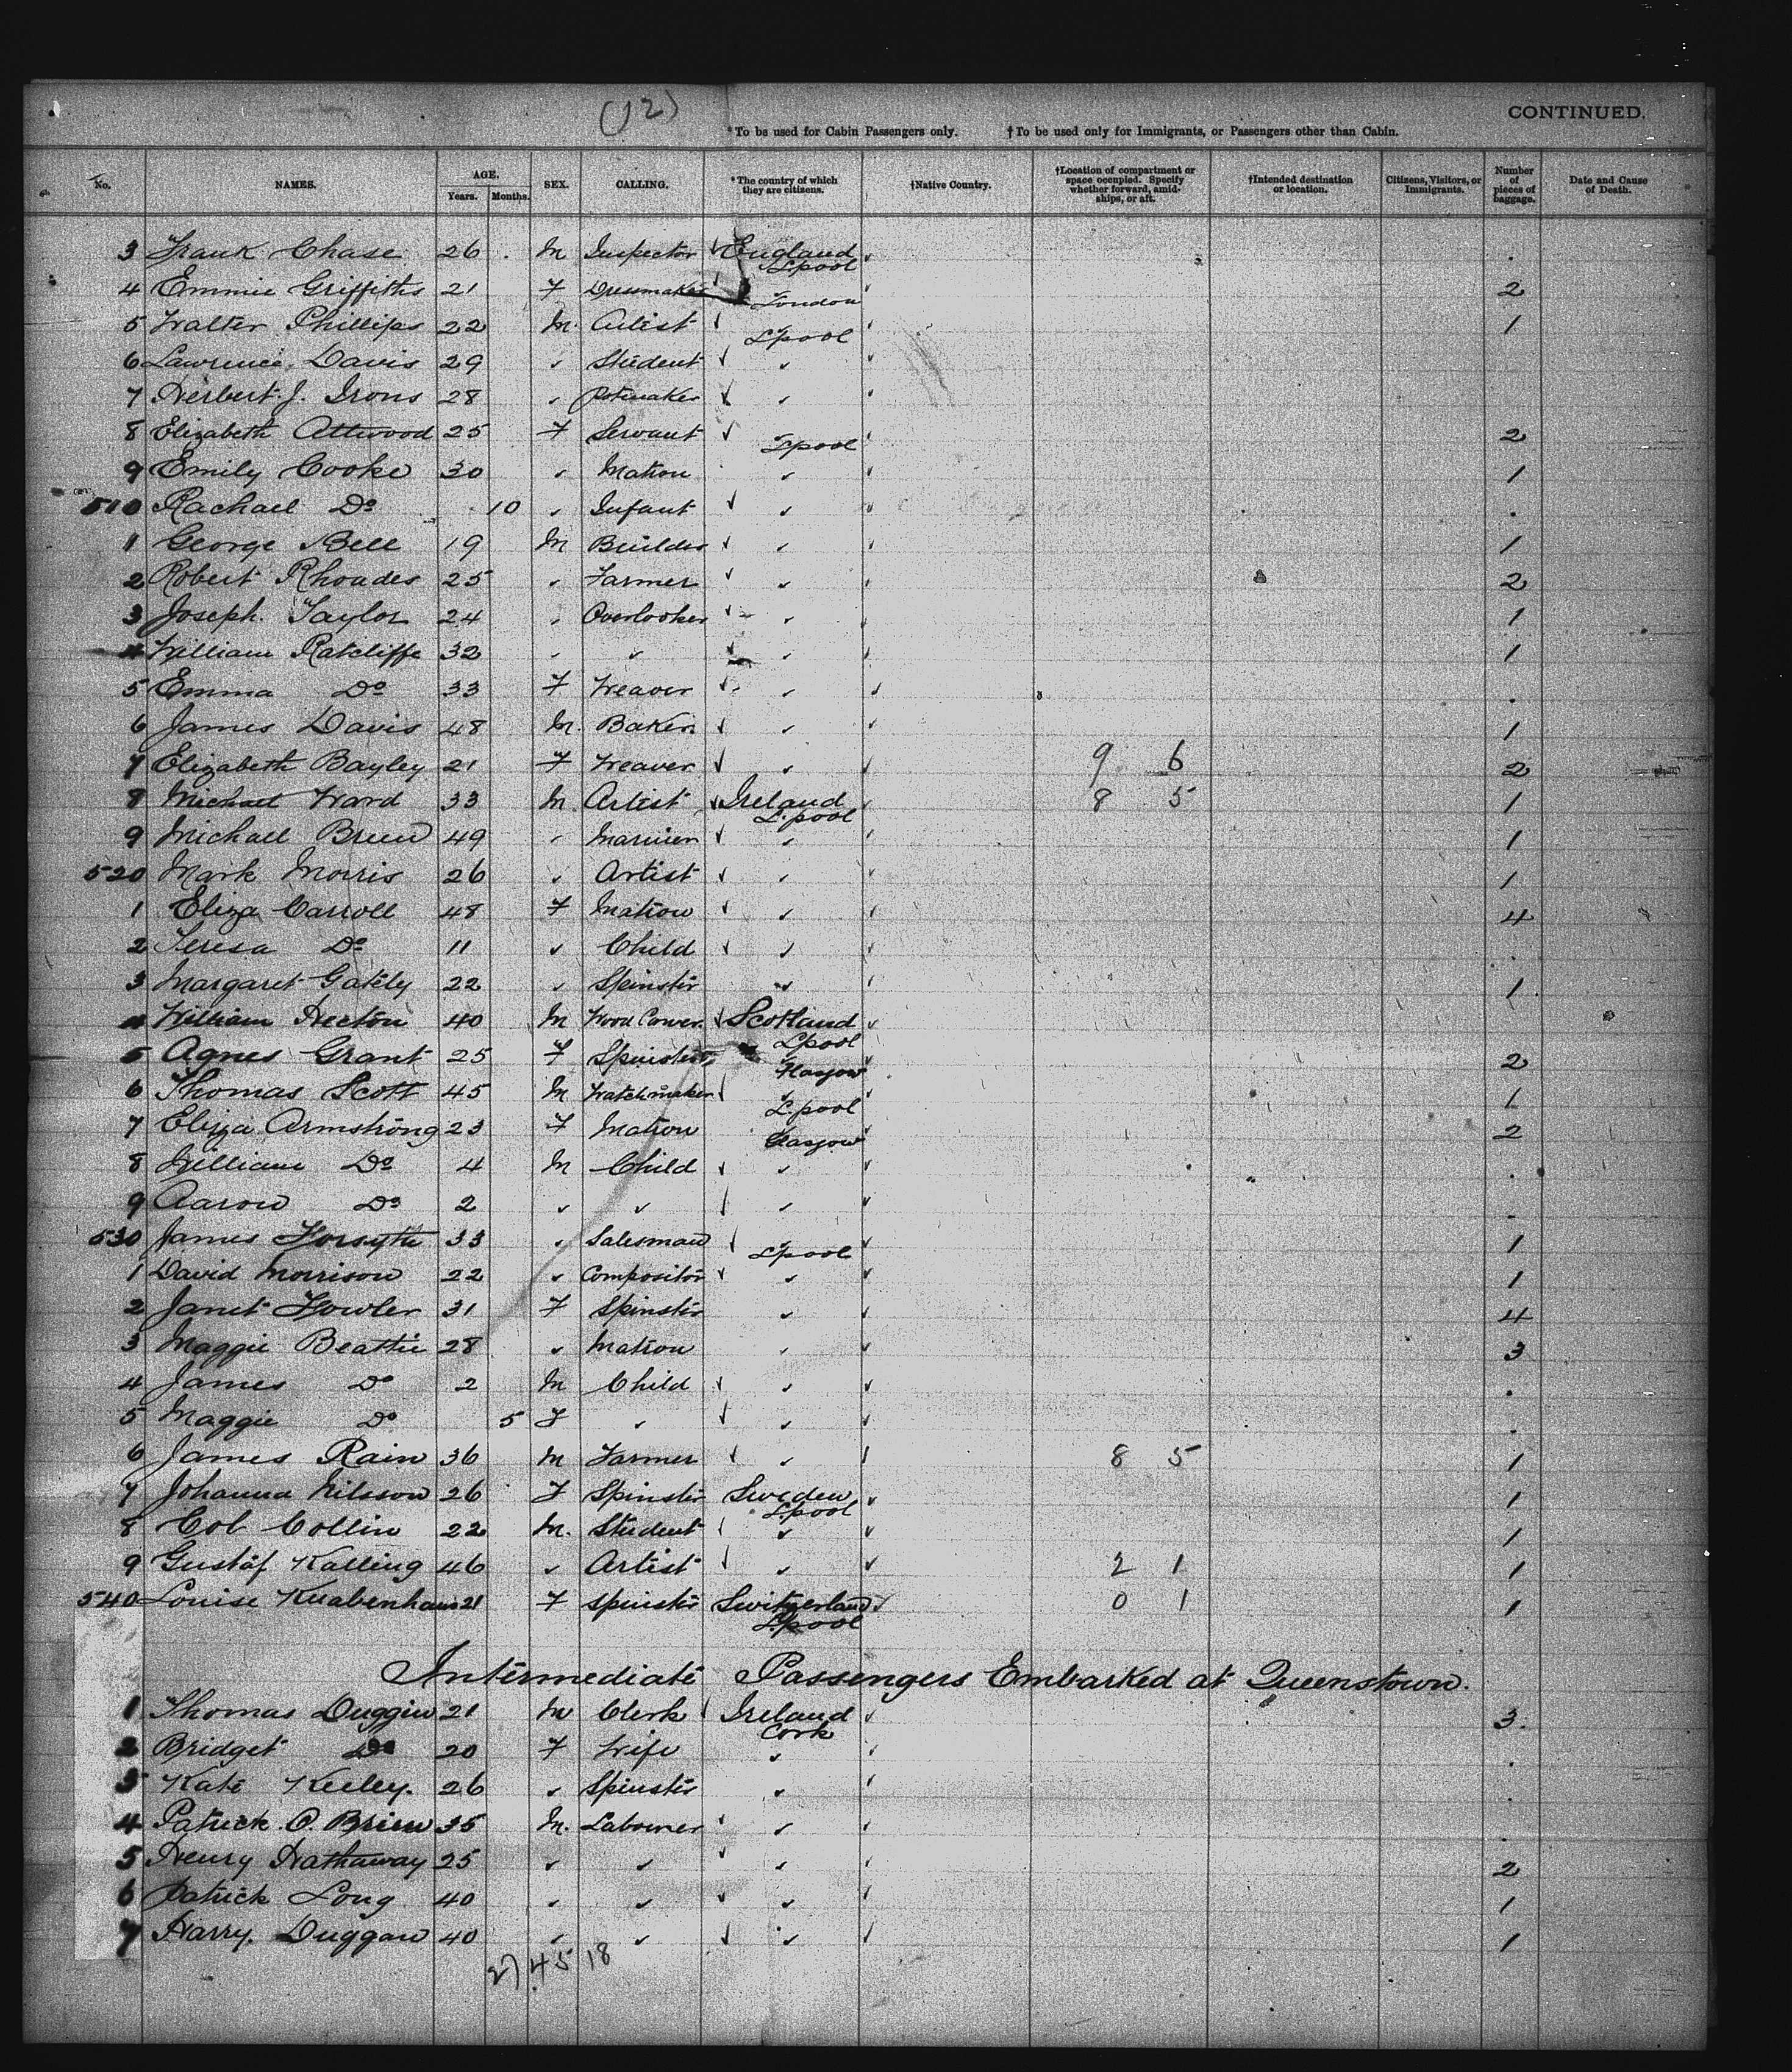 (12)
CONTINUED.
*To be used for Cabin Passengers only. †To be used only for Immigrants, or Passengers other than Cabin.
No. NAMES. AGE. Years. Months. SEX. CALLING. *The country of which they are citizens. †Native Country. †Location of compartment or space occupied. Specify whether forward, amidships, or aft. †Intended destination or location. Citizens, Visitors, or Immigrants. Number of pieces of baggage. Date and Cause of Death.
3 Frank Chase 26 M Inspector England
L'pool
4 Emmie Griffiths 21 F Dressmaker 2
London
5 Walter Phillips 22 M. Artist 1
L'pool
6 Lawrence Davis 29 " Student "
7 Herbert J. Irons 28 " "
8 Elizabeth Attwood 25 F Servant 2
L'pool
9 Emily Cooke 30 " Matron " 1
510 Rachael Do 10 " Infant "
1 George Bell 19 M Builder " 1
2 Robert Rhoades 25 " Farmer " 2
3 Joseph Taylor 24 " Overlooker " 1
4 William Ratcliffe 32 " " " 1
5 Emma Do 33 F Weaver "
6 James Davis 48 M. Baker " 1
7 Elizabeth Bayley 21 F Weaver " 9 6 2
8 Michael Ward 33 M. Artist Ireland 8 5 1
L'pool
9 Michael Breen 49 " Mariner " 1
520 Mark Morris 26 " Artist " 1
1 Eliza Carroll 48 F Matron " 4
2 Teresa Do 11 " Child "
3 Margaret Gately 22 " Spinster " 1
4 William Hecton 40 M Wood Carver Scotland
L'pool
5 Agnes Grant 25 F Spinster " 2
Glasgow
6 Thomas Scott 45 M Watchmaker " 1
L'pool
7 Eliza Armstrong 23 F Matron 2
Glasgow
8 William Do 4 M Child "
9 Aaron Do 2 " " "
530 James Forsyth 33 " Salesman " 1
L'pool
1 David Morrison 22 " Compositor " 1
2 Janet Fowler 31 F Spinster " 4
3 Maggie Beattie 28 " Matron " 3
4 James Do 2 M Child "
5 Maggie Do 5 F " "
6 James Rain 36 M Farmer " 8 5 1
7 Johanna Nilsson 26 F Spinster Sweden 1
L'pool
8 Collin 22 M. Student " 1
9 Gustaf Kalling 46 " Artist " 2 1 1
540 Louise Knabenhans 21 F Spinster Switzerland 0 1 1
L'pool
Intermediate Passengers Embarked at Queenstown.
1 Thomas Duggin 21 M Clerk Ireland 3.
Cork
2 Bridget Do 20 F Wife "
3 Kate Keeley. 26 " Spinster "
4 Patrick O. Brien 35 M. Labourer "
5 Henry Hathaway 25 " " " 2
6 Patrick Long 40 " " " 1
7 Harry. Duggan 40 " " " 1
2) 45 18